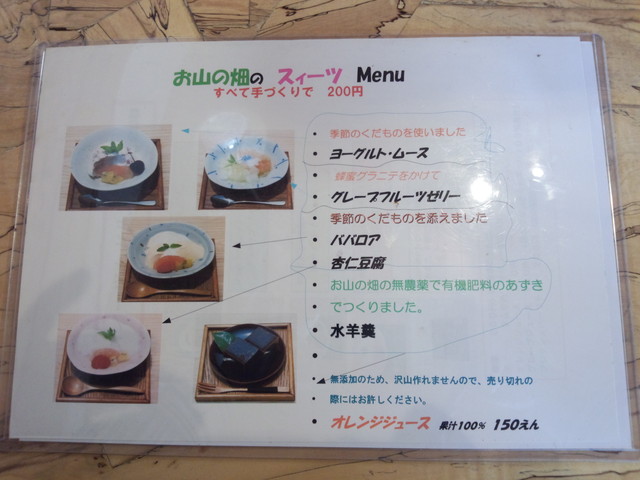 お山の畑の スィーツ Menu
すべて手づくりで 200円
季節のくだものを使いました
ヨーグルト・ムース
蜂蜜グラニテをかけて
グレープフルーツゼリー
季節のくだものを添えました
ババロア
杏仁豆腐
お山の畑の無農薬で有機肥料のあずき
でつくりました。
水羊羹
無添加のため、沢山作れませんので、売り切れの
際にはお許しください。
オレンジジュース 果汁100% 150えん